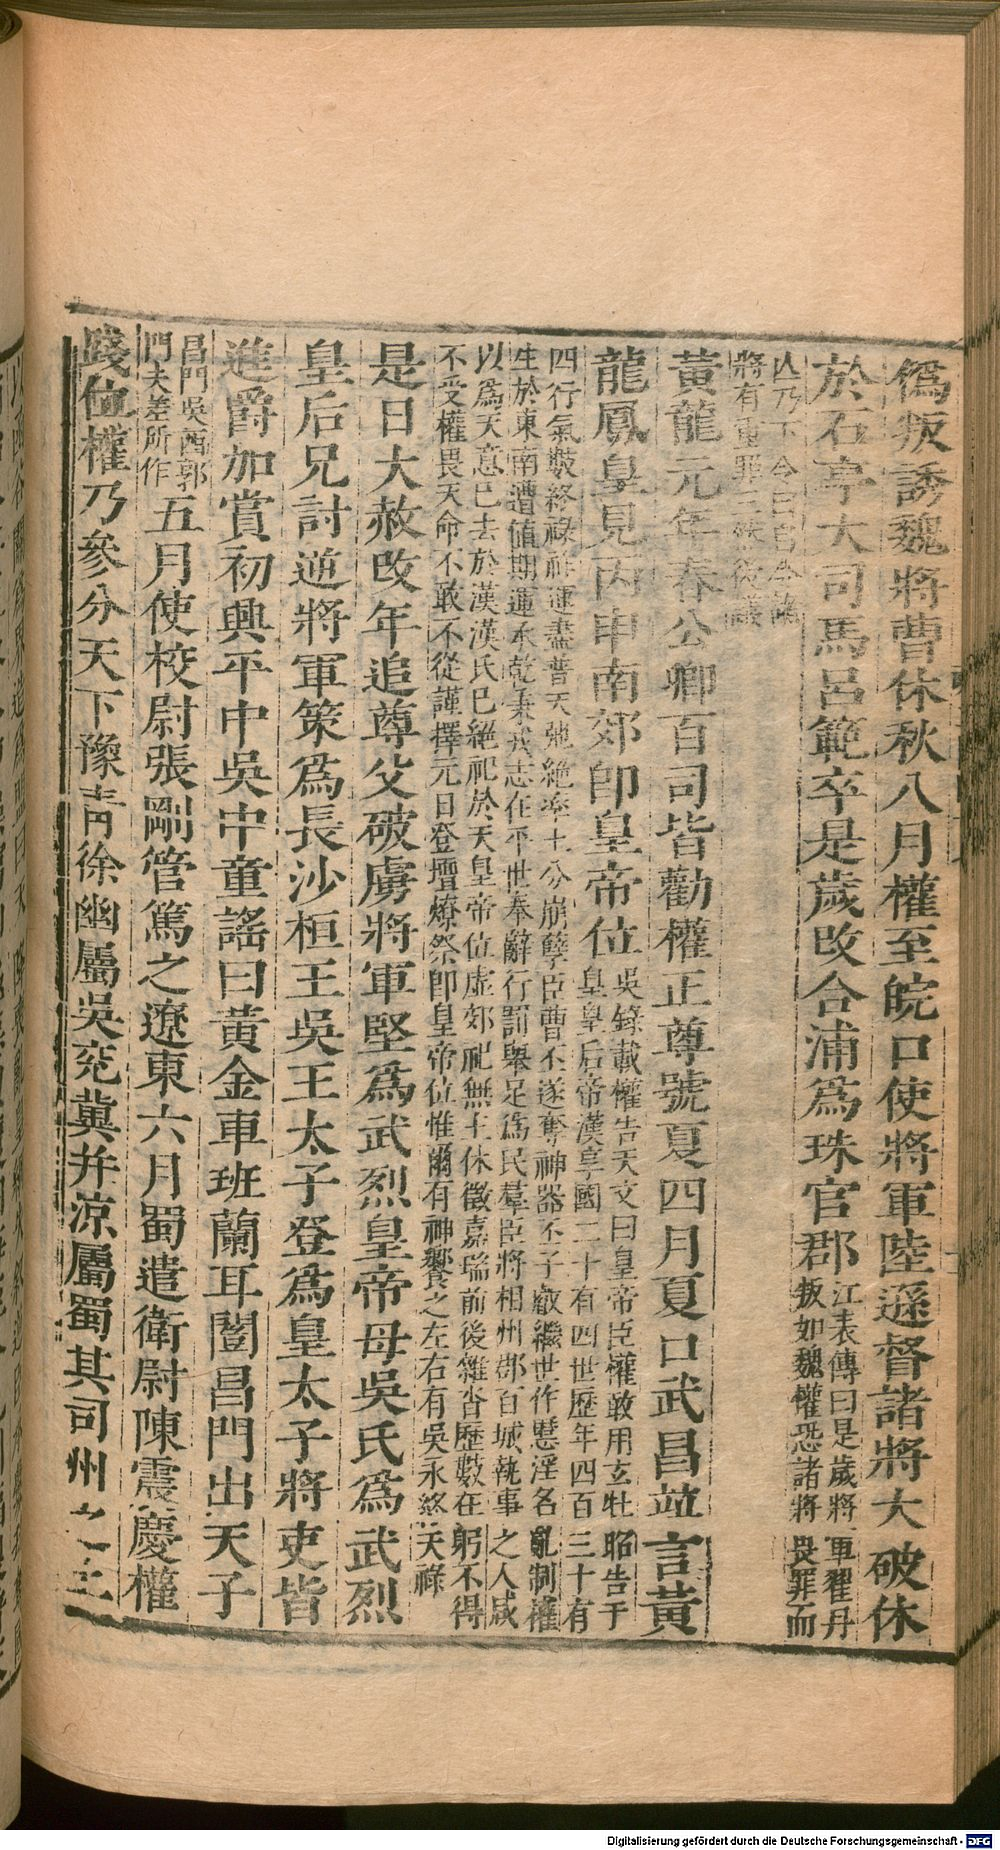 偽叛誘魏將曹休秋八月權至皖口使將軍陸遜督諸將大破休
於石亭大司馬呂範卒是歲改合浦為珠官郡江表傳曰是歲將軍翟丹
叛如魏權恐諸將畏罪而
亡乃下令曰自今諸
將有重罪三然後議
黃龍元年春公卿百司皆勸權正尊號夏四月夏口武昌竝言黃
龍鳳皇見丙申南郊即皇帝位吳錄載權告天文曰皇帝臣權敢用玄牡昭告于
皇皇后帝漢享國二十有四世歷年四百三十有
四行氣數終祿祚運盡普天弛絕率土分崩孽臣曹丕遂奪神器丕子叡繼世作慝淫名亂制權
生於東南遭值期運承乾秉戎志在平世奉辭行罰舉足為民羣臣將相州郡百城執事之人咸
以為天意已去於漢漢氏已絕祀於天皇帝位虛郊祀無主休徵嘉瑞前後雜沓歷數在躬不得
不受權畏天命不敢不從謹擇元日登壇燎祭即皇帝位惟爾有神饗之左右有吳永終天祿
是日大赦改年追尊父破虜將軍堅為武烈皇帝母吳氏為武烈
皇后兄討逆將軍策為長沙桓王吳王太子登為皇太子將吏皆
進爵加賞初興平中吳中童謠曰黃金車班蘭耳闓昌門出天子
昌門吳西郭
門夫差所作五月使校尉張剛管篤之遼東六月蜀遣衛尉陳震慶權
踐位權乃參分天下豫青徐幽屬吳兗冀并涼屬蜀其司州之土
Digitalisierung gefördert durch die Deutsche Forschungsgemeinschaft - DFG